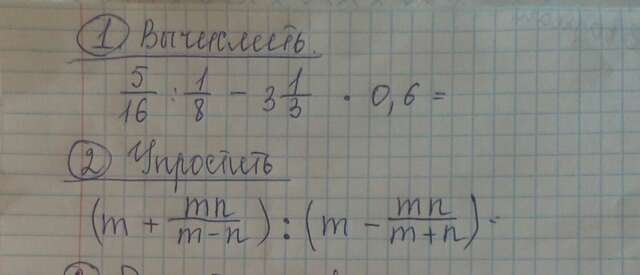 1 Вычислить.
5/16 : 1/8 - 3 1/3 · 0,6 =
2 Упростить
(m + mn/(m-n)) : (m - mn/(m+n)) -